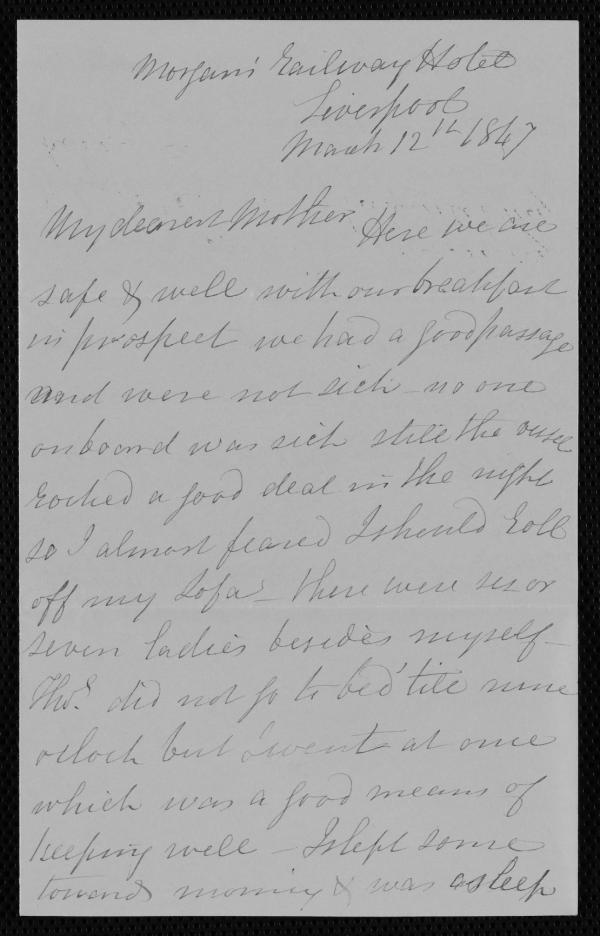 Morgan's Railway Hotel
Liverpool
March 12th 1847
My dearest Mother Here we are
safe & well with our breakfast
in prospect we had a good passage
and were not sick - no one
on board was sick still the vessel
rocked a good deal in the night
so I almost feared I should roll
off my Sofa - there were six or
seven ladies besides myself -
Thos. did not go to bed till nine
oclock but I went at once
which was a good means of
keeping well - I slept some
towards morning & was asleep